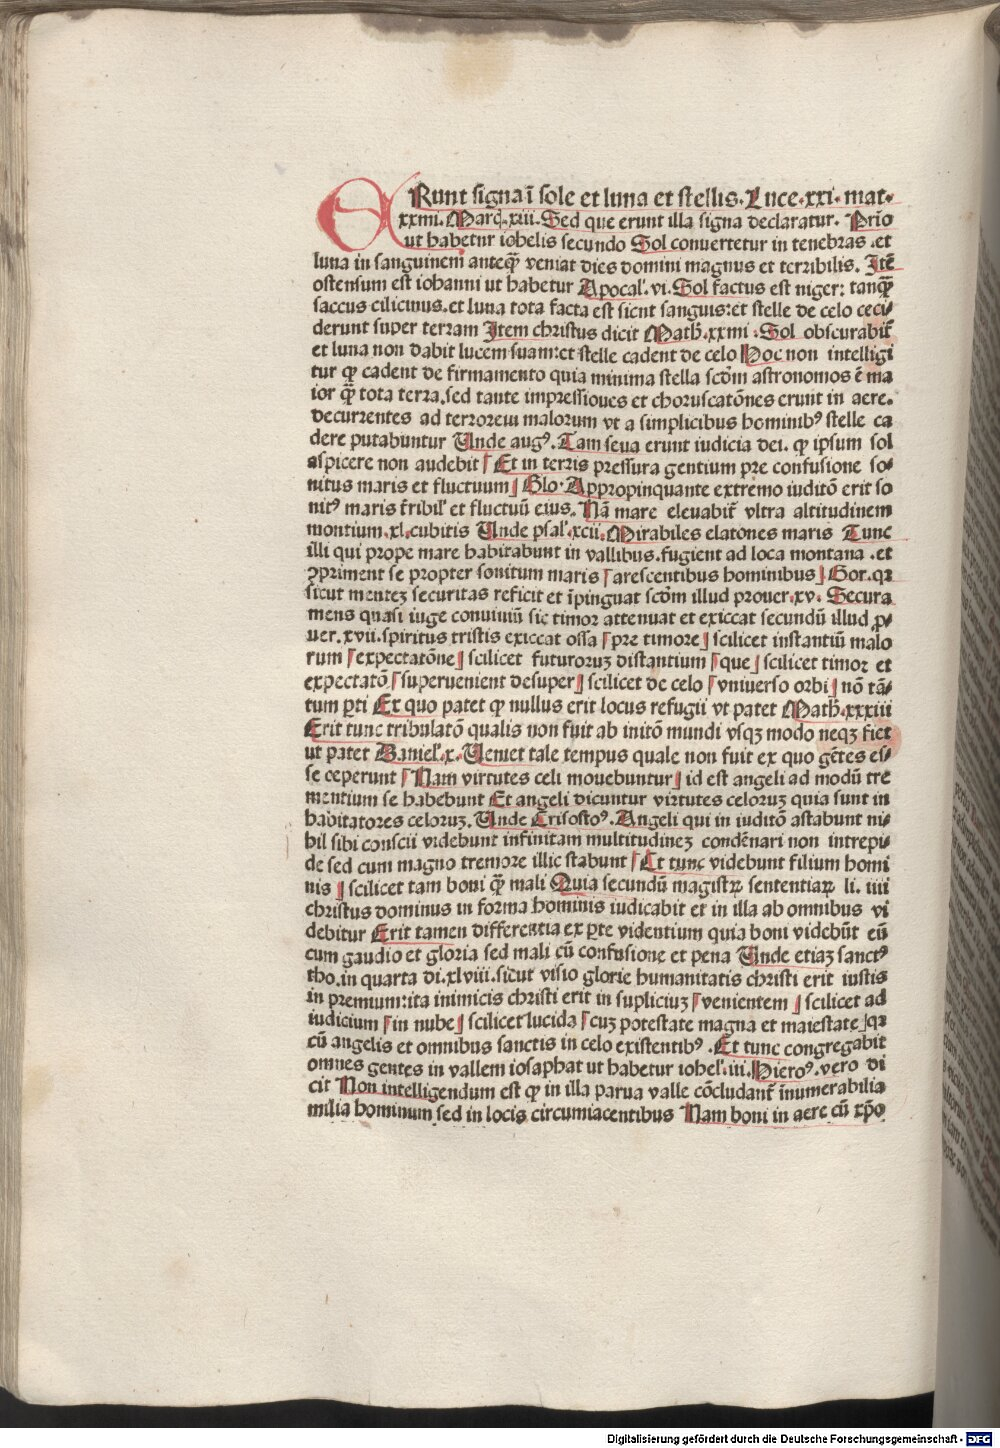 ERunt signa ī sole et luna et stellis. Luce .xxi. mat.
xxiiii. Marci .xiii. Sed que erunt illa signa declaratur. Prio
ut habetur iohelis secundo Sol conuertetur in tenebras .et
luna in sanguinem anteqȝ veniat dies domini magnus et terribilis. Itē
ostensum est iohanni ut habetur Apocal'. vi. Sol factus est niger: tanqȝ
saccus cilicinus. et luna tota facta est sicut sanguis: et stelle de celo ceci-
derunt super terram Item christus dicit Math̄. xxiiii . Sol obscurabit̄
et luna non dabit lucem suam: et stelle cadent de celo Hoc non intelligi
tur ꝙ cadent de firmamento quia minima stella scd̄m astronomos ē ma
ior qȝ tota terra. sed tante impressiones et choruscatōnes erunt in aere.
decurrentes ad terrorem malorum vt a simplicibus hominibꝰ stelle ca
dere putabuntur Unde augꝰ. Tam seua erunt iudicia dei. ꝙ ipsum sol
aspicere non audebit Et in terris pressura gentium pre confusione so-
nitus maris et fluctuum Glo. Appropinquante extremo iuditō erit so
nitꝰ maris t̄ribil' et fluctuū eius. Nā mare eleuabit̄ vltra altitudinem
montium .xl. cubitis Unde psal'. xcii. Mirabiles elatones maris Tunc
illi qui prope mare habitabunt in vallibus. fugient ad loca montana . et
ꝯpriment se propter sonitum maris arescentibus hominibus Gor. qꝛ
sicut menteȝ securitas reficit et īpinguat scd̄m illud prouer. xv. Secura
mens quasi iuge conuiuiū sic timor attenuat et exiccat secundū illud ꝓ-
uer. xvii. spiritus tristis exiccat ossa pre timore scilicet instantiū malo
rum expectatōne scilicet futuroruȝ distantium que scilicet timor et
expectatō superuenient desuper scilicet de celo vniuerso orbi nō tā-
tum ꝑti Ex quo patet ꝙ nullus erit locus refugii vt patet Math̄. xxxiii
Erit tunc tribulatō qualis non fuit ab initō mundi vsqȝ modo neqȝ fiet
ut patet Daniel'. x. Veniet tale tempus quale non fuit ex quo gētes es-
se ceperunt Nam virtutes celi mouebuntur id est angeli ad modū tre
mentium se habebunt Et angeli dicuntur virtutes celoruȝ quia sunt in
habitatores celoruȝ. Unde Crisostoꝰ. Angeli qui in iuditō astabunt ni-
hil sibi conscii videbunt infinitam multitudineȝ condēnari non intrepi-
de sed cum magno tremore illic stabunt Et tunc videbunt filium homi
nis scilicet tam boni qȝ mali Quia secundū magistꝝ sententiaꝝ li. iiii
christus dominus in forma hominis iudicabit et in illa ab omnibus vi
debitur Erit tamen differentia ex ꝑte videntium quia boni videbūt eū
cum gaudio et gloria sed mali cū confusione et pena Unde etiaȝ sanctꝰ
tho. in quarta di. xlviii. sicut visio glorie humanitatis christi erit iustis
in premium: ita inimicis christi erit in supliciuȝ venientem scilicet ad
iudicium in nube scilicet lucida cuȝ potestate magna et maiestate qꝛ
cū angelis et omnibus sanctis in celo existentibꝰ . Et tunc congregabit
omnes gentes in vallem iosaphat ut habetur iohel'. iii. Hieroꝰ. vero di
cit Non intelligendum est ꝙ in illa parua valle cōcludant̄ īnumerabilia
milia hominum sed in locis circumiacentibus Nam boni in aere cū xp̄o
Digitalisierung gefördert durch die Deutsche Forschungsgemeinschaft - DFG